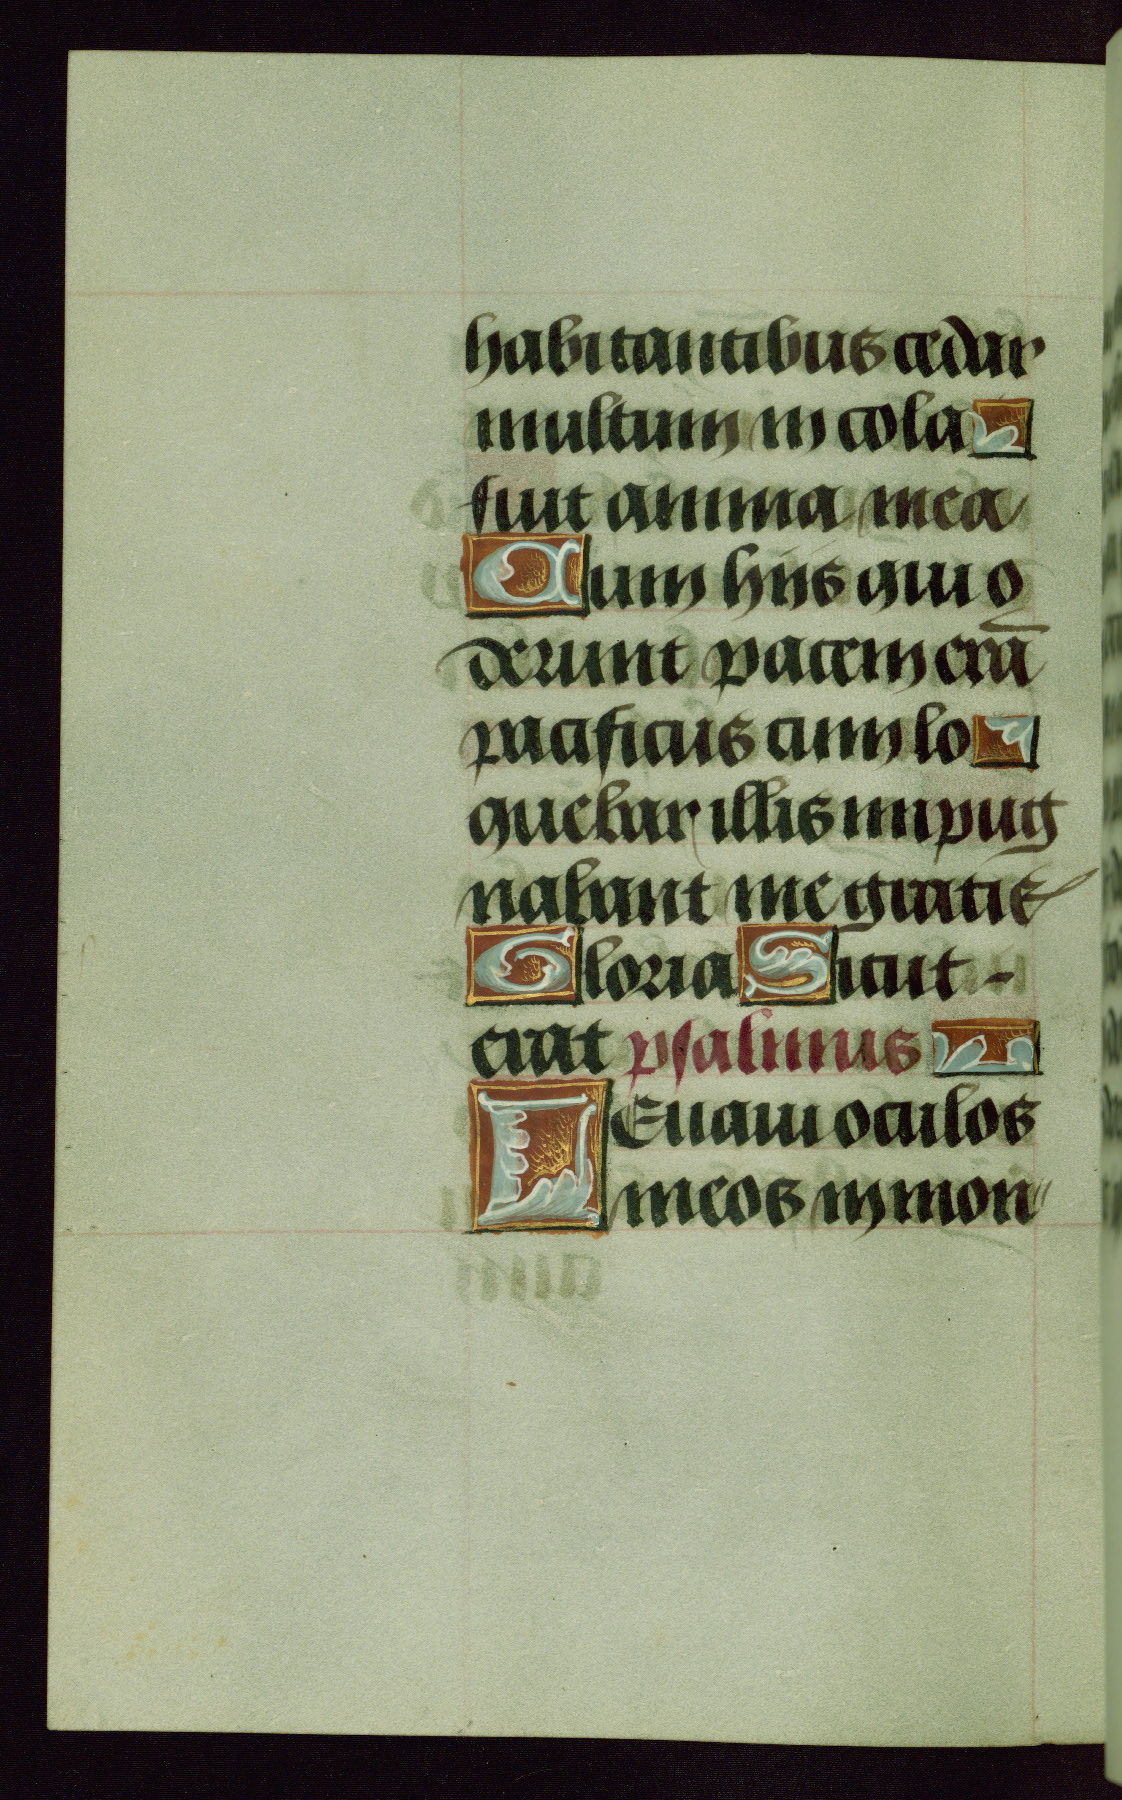 habitantibus cedar
multum incola
fuit anima mea
Cum hiis qui o
derunt pacem erā
pacificus cum lo
quebar illis inpug
nabant me gratis
Gloria Sicut -
erat psalmus
LEuaui oculos
meos in mon